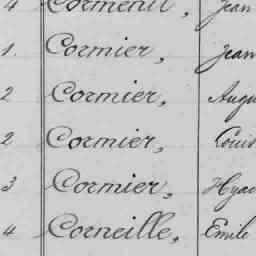 4 Cormenil, Jean
1. Cormier, Jean
2 Cormier, Augu
2 Cormier, Louis
3 Cormier, Hyac
4 Corneille, Emile